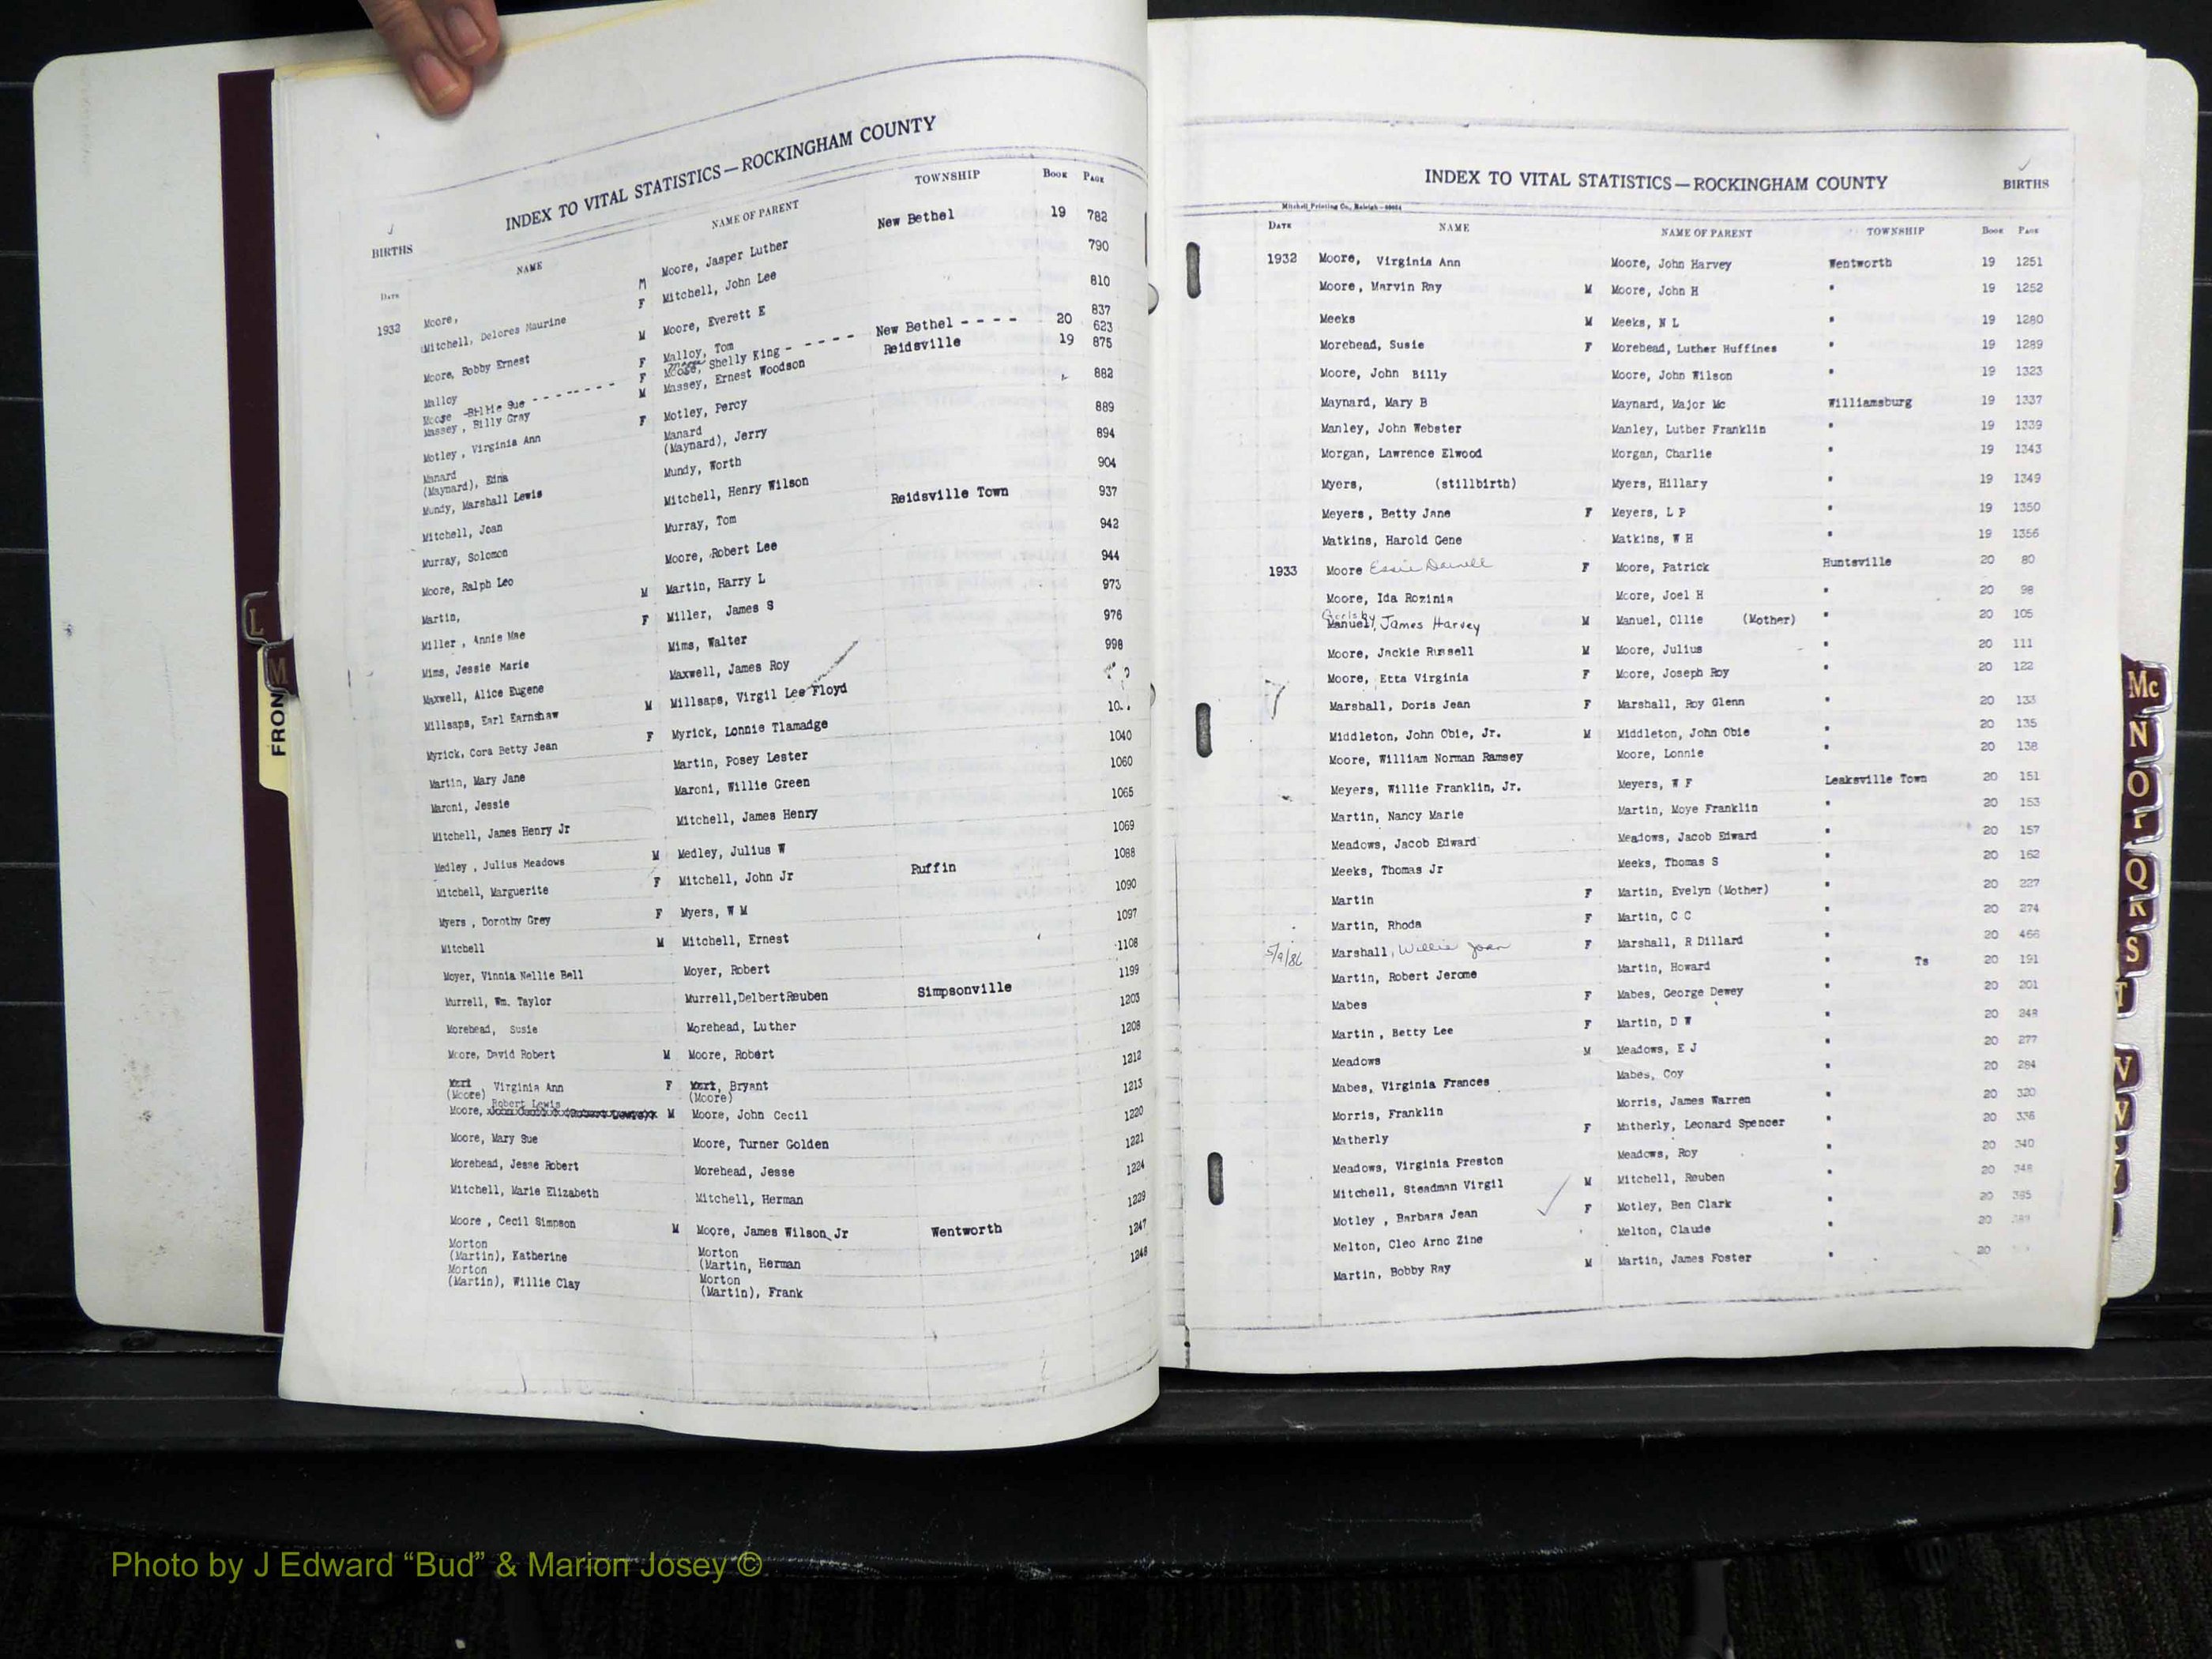 INDEX TO VITAL STATISTICS—ROCKINGHAM COUNTY
BIRTHS
DATE NAME NAME OF PARENT TOWNSHIP BOOK PAGE
1932 Moore, M Moore, Jasper Luther New Bethel 19 782
Mitchell, Delores Maurine F Mitchell, John Lee 790
Moore, Bobby Ernest M Moore, Everett E 810
Malloy F Malloy, Tom 837
Moore -Billie Sue - - - - - - - F Moore, Shelly King - - - - - New Bethel - - - - 20 623
Massey, Billy Gray M Massey, Ernest Woodson Reidsville 19 875
Motley, Virginia Ann F Motley, Percy 882
Manard
(Maynard), Edna Manard
(Maynard), Jerry 889
Mundy, Marshall Lewis Mundy, Worth 894
Mitchell, Joan Mitchell, Henry Wilson 904
Murray, Solomon Murray, Tom Reidsville Town 937
Moore, Ralph Leo Moore, Robert Lee 942
Martin, M Martin, Harry L 944
Miller, Annie Mae F Miller, James S 973
Mims, Jessie Marie Mims, Walter 976
Maxwell, Alice Eugene Maxwell, James Roy 998
Millsaps, Earl Earnshaw M Millsaps, Virgil Lee Floyd
Myrick, Cora Betty Jean F Myrick, Lonnie Tlamadge
Martin, Mary Jane Martin, Posey Lester 1040
Maroni, Jessie Maroni, Willie Green 1060
Mitchell, James Henry Jr Mitchell, James Henry 1065
Medley, Julius Meadows M Medley, Julius W 1069
Mitchell, Marguerite F Mitchell, John Jr Ruffin 1088
Myers, Dorothy Grey F Myers, W M 1090
Mitchell M Mitchell, Ernest 1097
Moyer, Vinnia Nellie Bell Moyer, Robert 1108
Murrell, Wm. Taylor Murrell, Delbert Reuben Simpsonville 1199
Morehead, Susie Morehead, Luther 1203
Moore, David Robert M Moore, Robert 1208
(Moore) Virginia Ann F Bryant
(Moore) 1212
Moore, Robert Lewis M Moore, John Cecil 1213
Moore, Mary Sue Moore, Turner Golden 1220
Morehead, Jesse Robert Morehead, Jesse 1221
Mitchell, Marie Elizabeth Mitchell, Herman 1224
Moore, Cecil Simpson M Moore, James Wilson, Jr Wentworth 1229
Morton
(Martin), Katherine Morton
(Martin, Herman 1247
Morton
(Martin), Willie Clay Morton
(Martin), Frank 1248
L
M
FRON
INDEX TO VITAL STATISTICS—ROCKINGHAM COUNTY
BIRTHS
Mitchell Printing Co., Raleigh
DATE NAME NAME OF PARENT TOWNSHIP BOOK PAGE
1932 Moore, Virginia Ann Moore, John Harvey Wentworth 19 1251
Moore, Marvin Ray M Moore, John H " 19 1252
Meeks M Meeks, N L " 19 1280
Morehead, Susie F Morehead, Luther Huffines " 19 1289
Moore, John Billy Moore, John Wilson " 19 1323
Maynard, Mary B Maynard, Major Mc Williamsburg 19 1337
Manley, John Webster Manley, Luther Franklin " 19 1339
Morgan, Lawrence Elwood Morgan, Charlie " 19 1343
Myers, (stillbirth) Myers, Hillary " 19 1349
Meyers, Betty Jane F Meyers, L P " 19 1350
Matkins, Harold Gene Matkins, W H " 19 1356
1933 Moore Essie F Moore, Patrick Huntsville 20 80
Moore, Ida Rozinia Moore, Joel H " 20 98
Manuel, James Harvey M Manuel, Ollie (Mother) " 20 105
Moore, Jackie Russell M Moore, Julius " 20 111
Moore, Etta Virginia F Moore, Joseph Roy " 20 122
Marshall, Doris Jean F Marshall, Roy Glenn " 20 133
Middleton, John Obie, Jr. M Middleton, John Obie " 20 135
Moore, William Norman Ramsey Moore, Lonnie " 20 138
Meyers, Willie Franklin, Jr. Meyers, W F Leaksville Town 20 151
Martin, Nancy Marie Martin, Moye Franklin " 20 153
Meadows, Jacob Edward Meadows, Jacob Edward " 20 157
Meeks, Thomas Jr Meeks, Thomas S " 20 162
Martin F Martin, Evelyn (Mother) " 20 227
Martin, Rhoda F Martin, C C " 20 274
5/9/86 Marshall, Willie Joan F Marshall, R Dillard " 20 466
Martin, Robert Jerome Martin, Howard " Ts 20 191
Mabes F Mabes, George Dewey " 20 201
Martin, Betty Lee F Martin, D W " 20 248
Meadows M Meadows, E J " 20 277
Mabes, Virginia Frances Mabes, Coy " 20 284
Morris, Franklin Morris, James Warren " 20 320
Matherly F Matherly, Leonard Spencer " 20 336
Meadows, Virginia Preston Meadows, Roy " 20 340
Mitchell, Steadman Virgil M Mitchell, Reuben " 20 348
Motley, Barbara Jean F Motley, Ben Clark " 20 385
Melton, Cleo Arno Zine Melton, Claude 20
Martin, Bobby Ray M Martin, James Foster " 20
Mc
N
O
Q
R
S
T
V
Photo by J Edward “Bud” & Marion Josey ©